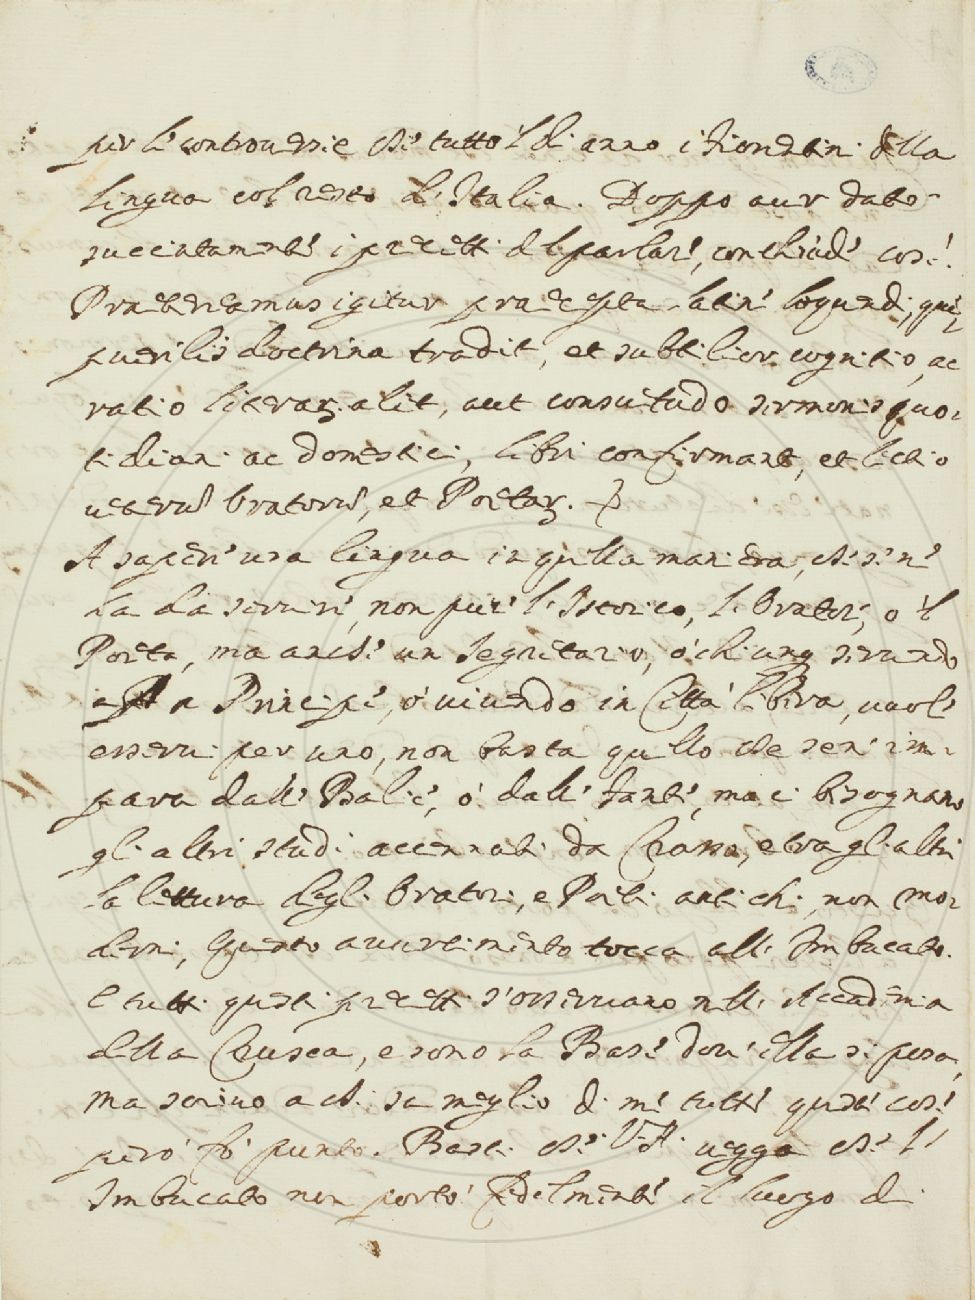 per le controuersie che tutto 'l dì anno i Fiorentini della
lingua col resto d'Italia. Doppo auer dato
succintamente i precetti del parlare, conchiude così:
Praetereamus igitur praecepta latine loquendi, que
puerilis doctrina tradit, et subtilior cognitio, ac
ratio literar. alit, aut consuetudo sermonis quo-
tidiani ac domestici, libri confirmant, et lectio
ueterũ Oratorũ, et Poetar.
A sapere una lingua in quella maniera, che se n'
ha da seruire, non pure l'Istorico, l'Oratore, o 'l
Poeta, ma anche un Segretario, o chiunq seruendo
a Principe, o uiuendo in Città libera, uuole
esserui per uno, non basta quello che se n'im-
para dalle Balie, o dalle fanti, ma ci bisognano
gli altri studi accennati da Crasso, e tra gli altri
la lettura degli Oratori, e Poeti antichi, non mo-
derni, Questo auuertimento tocca all'Imbucato.
E tutti questi precetti s'osseruano nell'Accademia
della Crusca, e sono la Base dou'ella si posa,
ma scriuo a chi sa meglio di me tutte queste cose
però fò punto. Basti che V.A. uegga che l'
Imbucato non portò fedelmente il luogo di